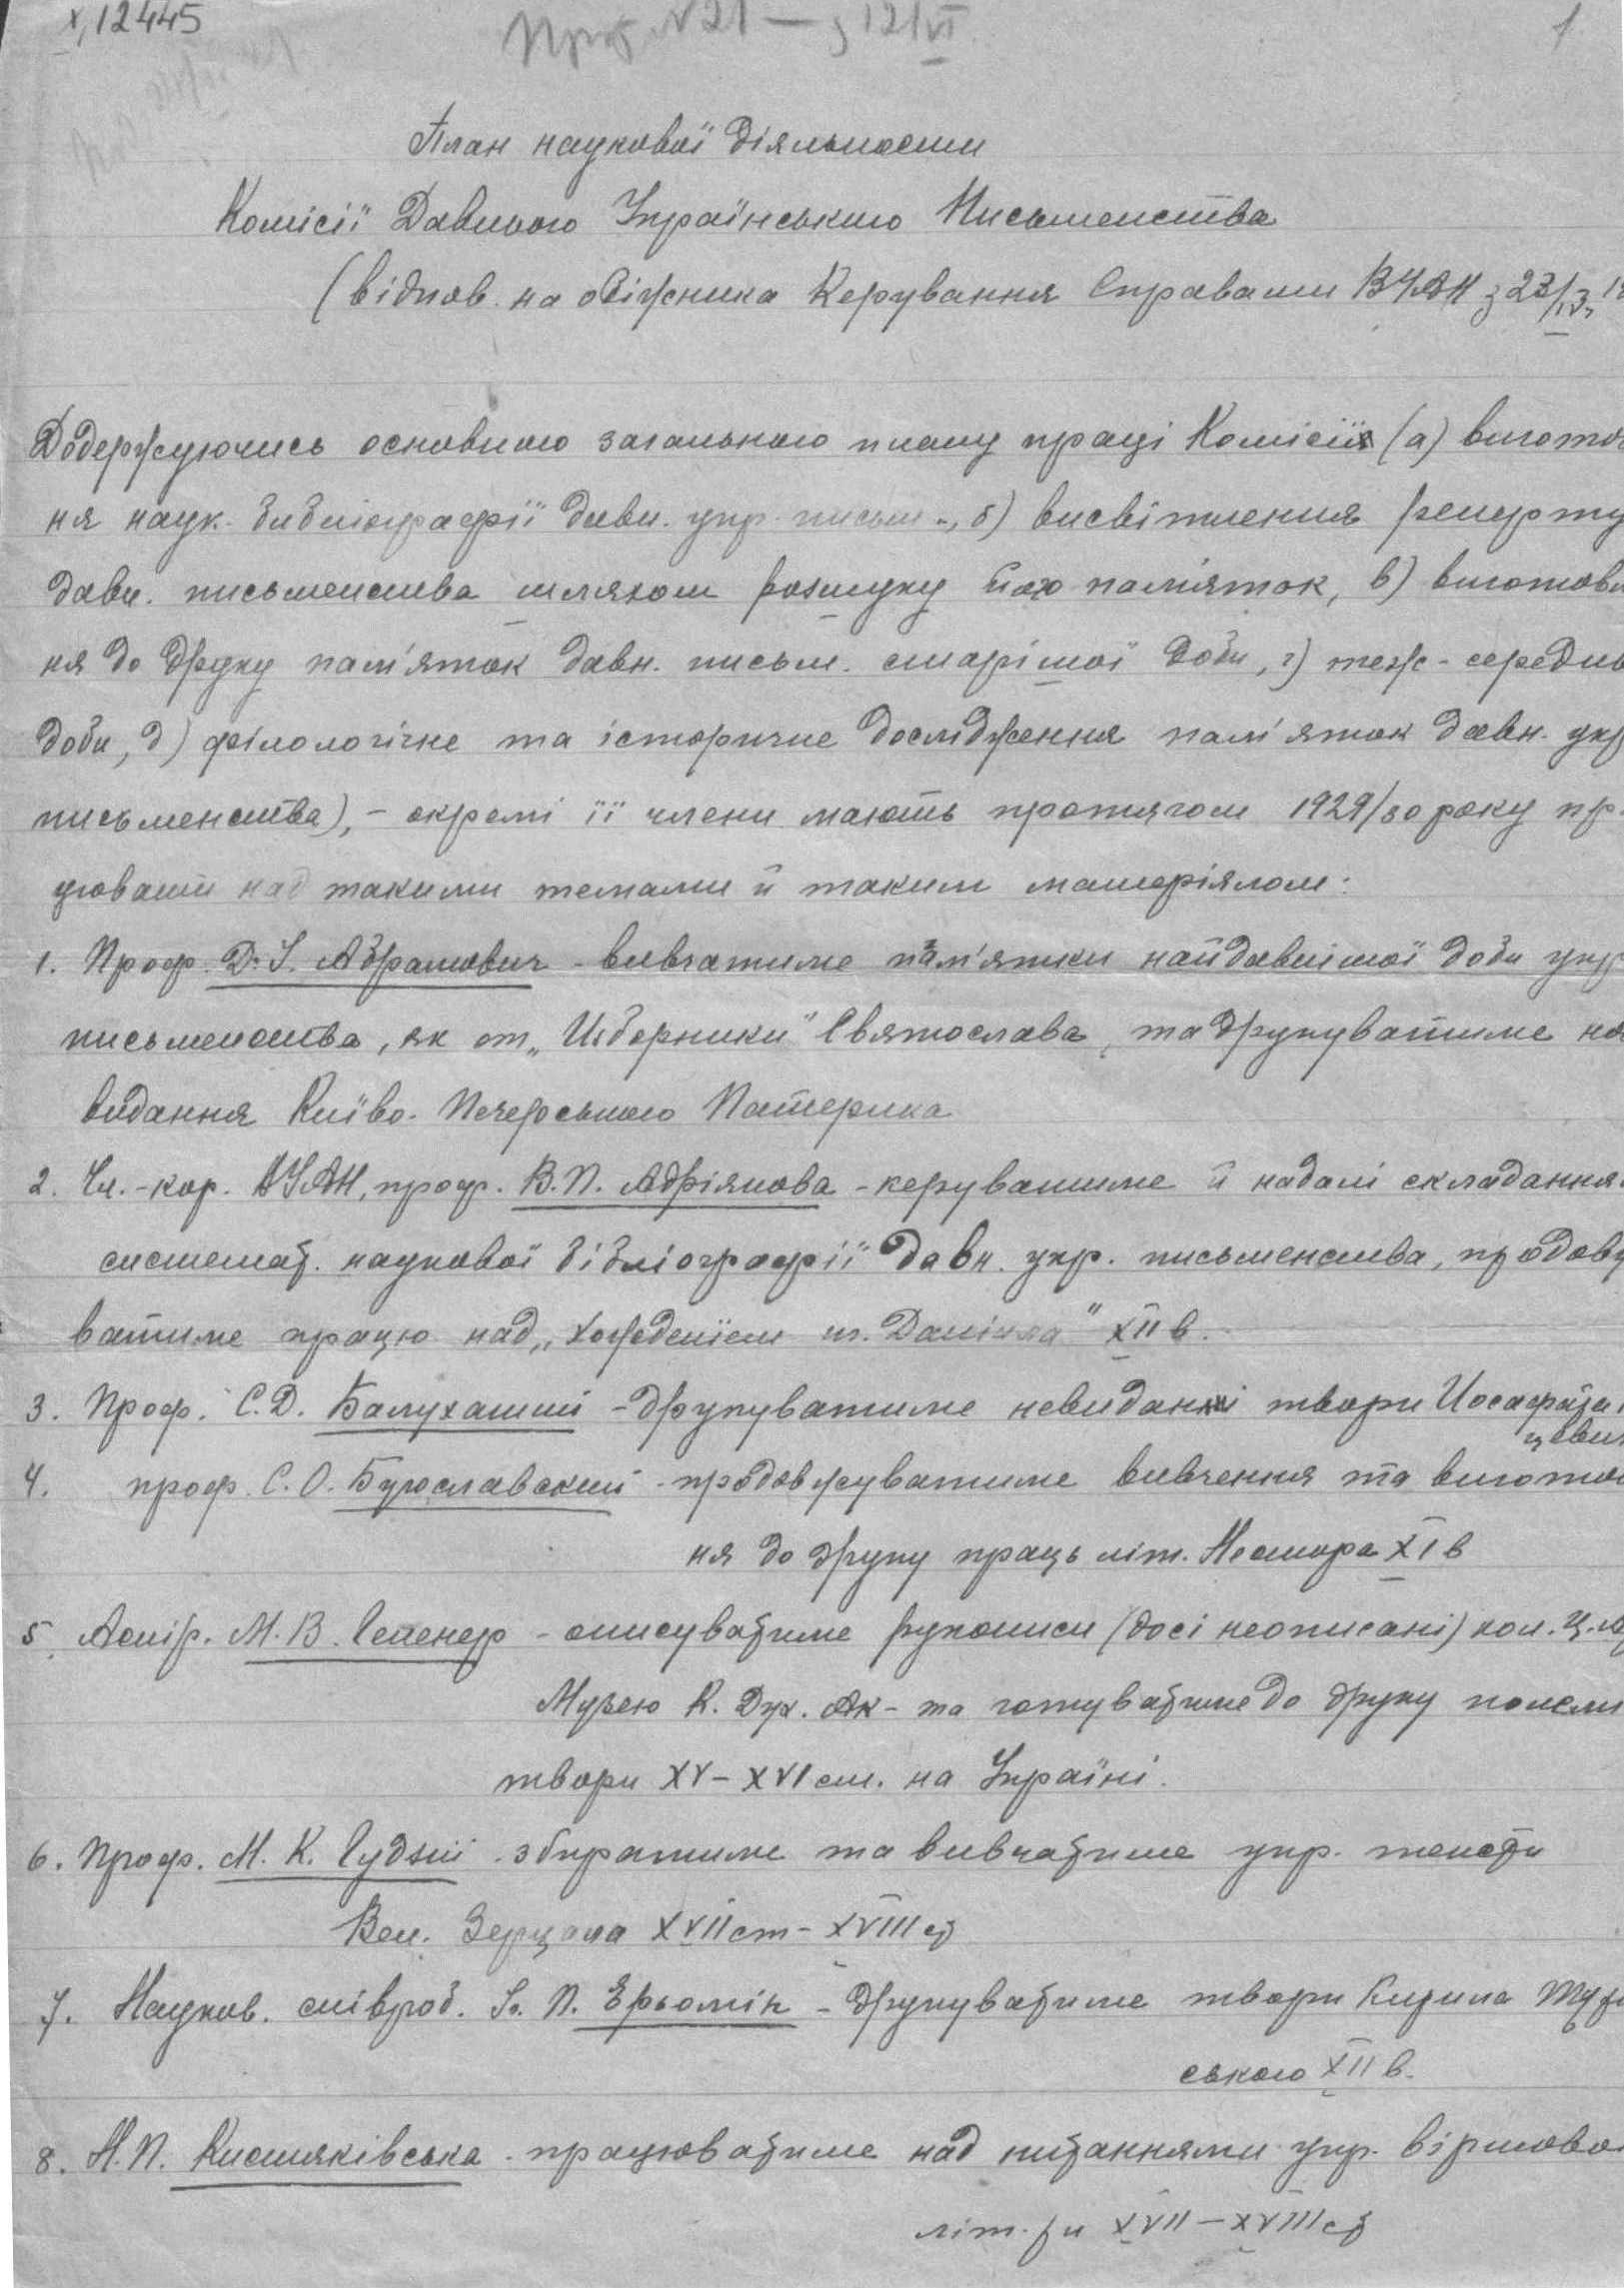 X, 12445
1
План наукової діяльности
Комісії Давнього Українського Письменства
(віднов. на обіжника Керування Справами ВУАН з 23/IV
Додержуючись основного загального плану праці Комісії (а) виготов
ня наук. библіографії давн. укр. письм., б) висвітлення реперту
давн. письменства шляхом розшуку його пам'яток, в) виготовл
ня до друку пам'яток давн. письм. старішої доби, г) теж - середнь
доби, д) філологічне та історичне дослідження пам'яток давн. укр
письменства), - окремі її члени мають протягом 1929/30 року пр
цювати над такими темами й таким матеріялом:
1. Проф. Д. І. Абрамович - вивчатиме пам'ятки найдавнішої доби укр
письменства, як от „Изборники" Святослава, та друкуватиме но
видання Київо-Печерського Патерика
2. Чл.-кор. ВУАН, проф. В.П. Адріянова - керуватиме й надалі складання
системат. наукової бібліографії давн. укр. письменства, продовжу
ватиме працю над „Хожденієм иг. Даніила" XII в.
3. Проф. С.Д. Балухатий - друкуватиме невидані твори Йосафата
цевич
4. проф. С.О. Бугославский - продовжуватиме вивчення та виготов
ня до друку праць літ. Нестора XI в
5. Аспір. М.В. Геппенер - описуватиме рукописи (досі неописані) кол. Ц.-А
Музею К. Дух. Ак - та готуватиме до друку полеми
твори XV-XVI ст. на Україні.
6. Проф. М. К. Гудзій - збиратиме та вивчатиме укр. тексти
Вел. Зерцала XVII ст - XVIII ст
7. Науков. співроб. І. П. Єрьомін - друкуватиме твори Кирила Тур
ського XII в.
8. Н.П. Кистяківська - працюватиме над питаннями укр. віршово
літ-ри XVII-XVIII ст